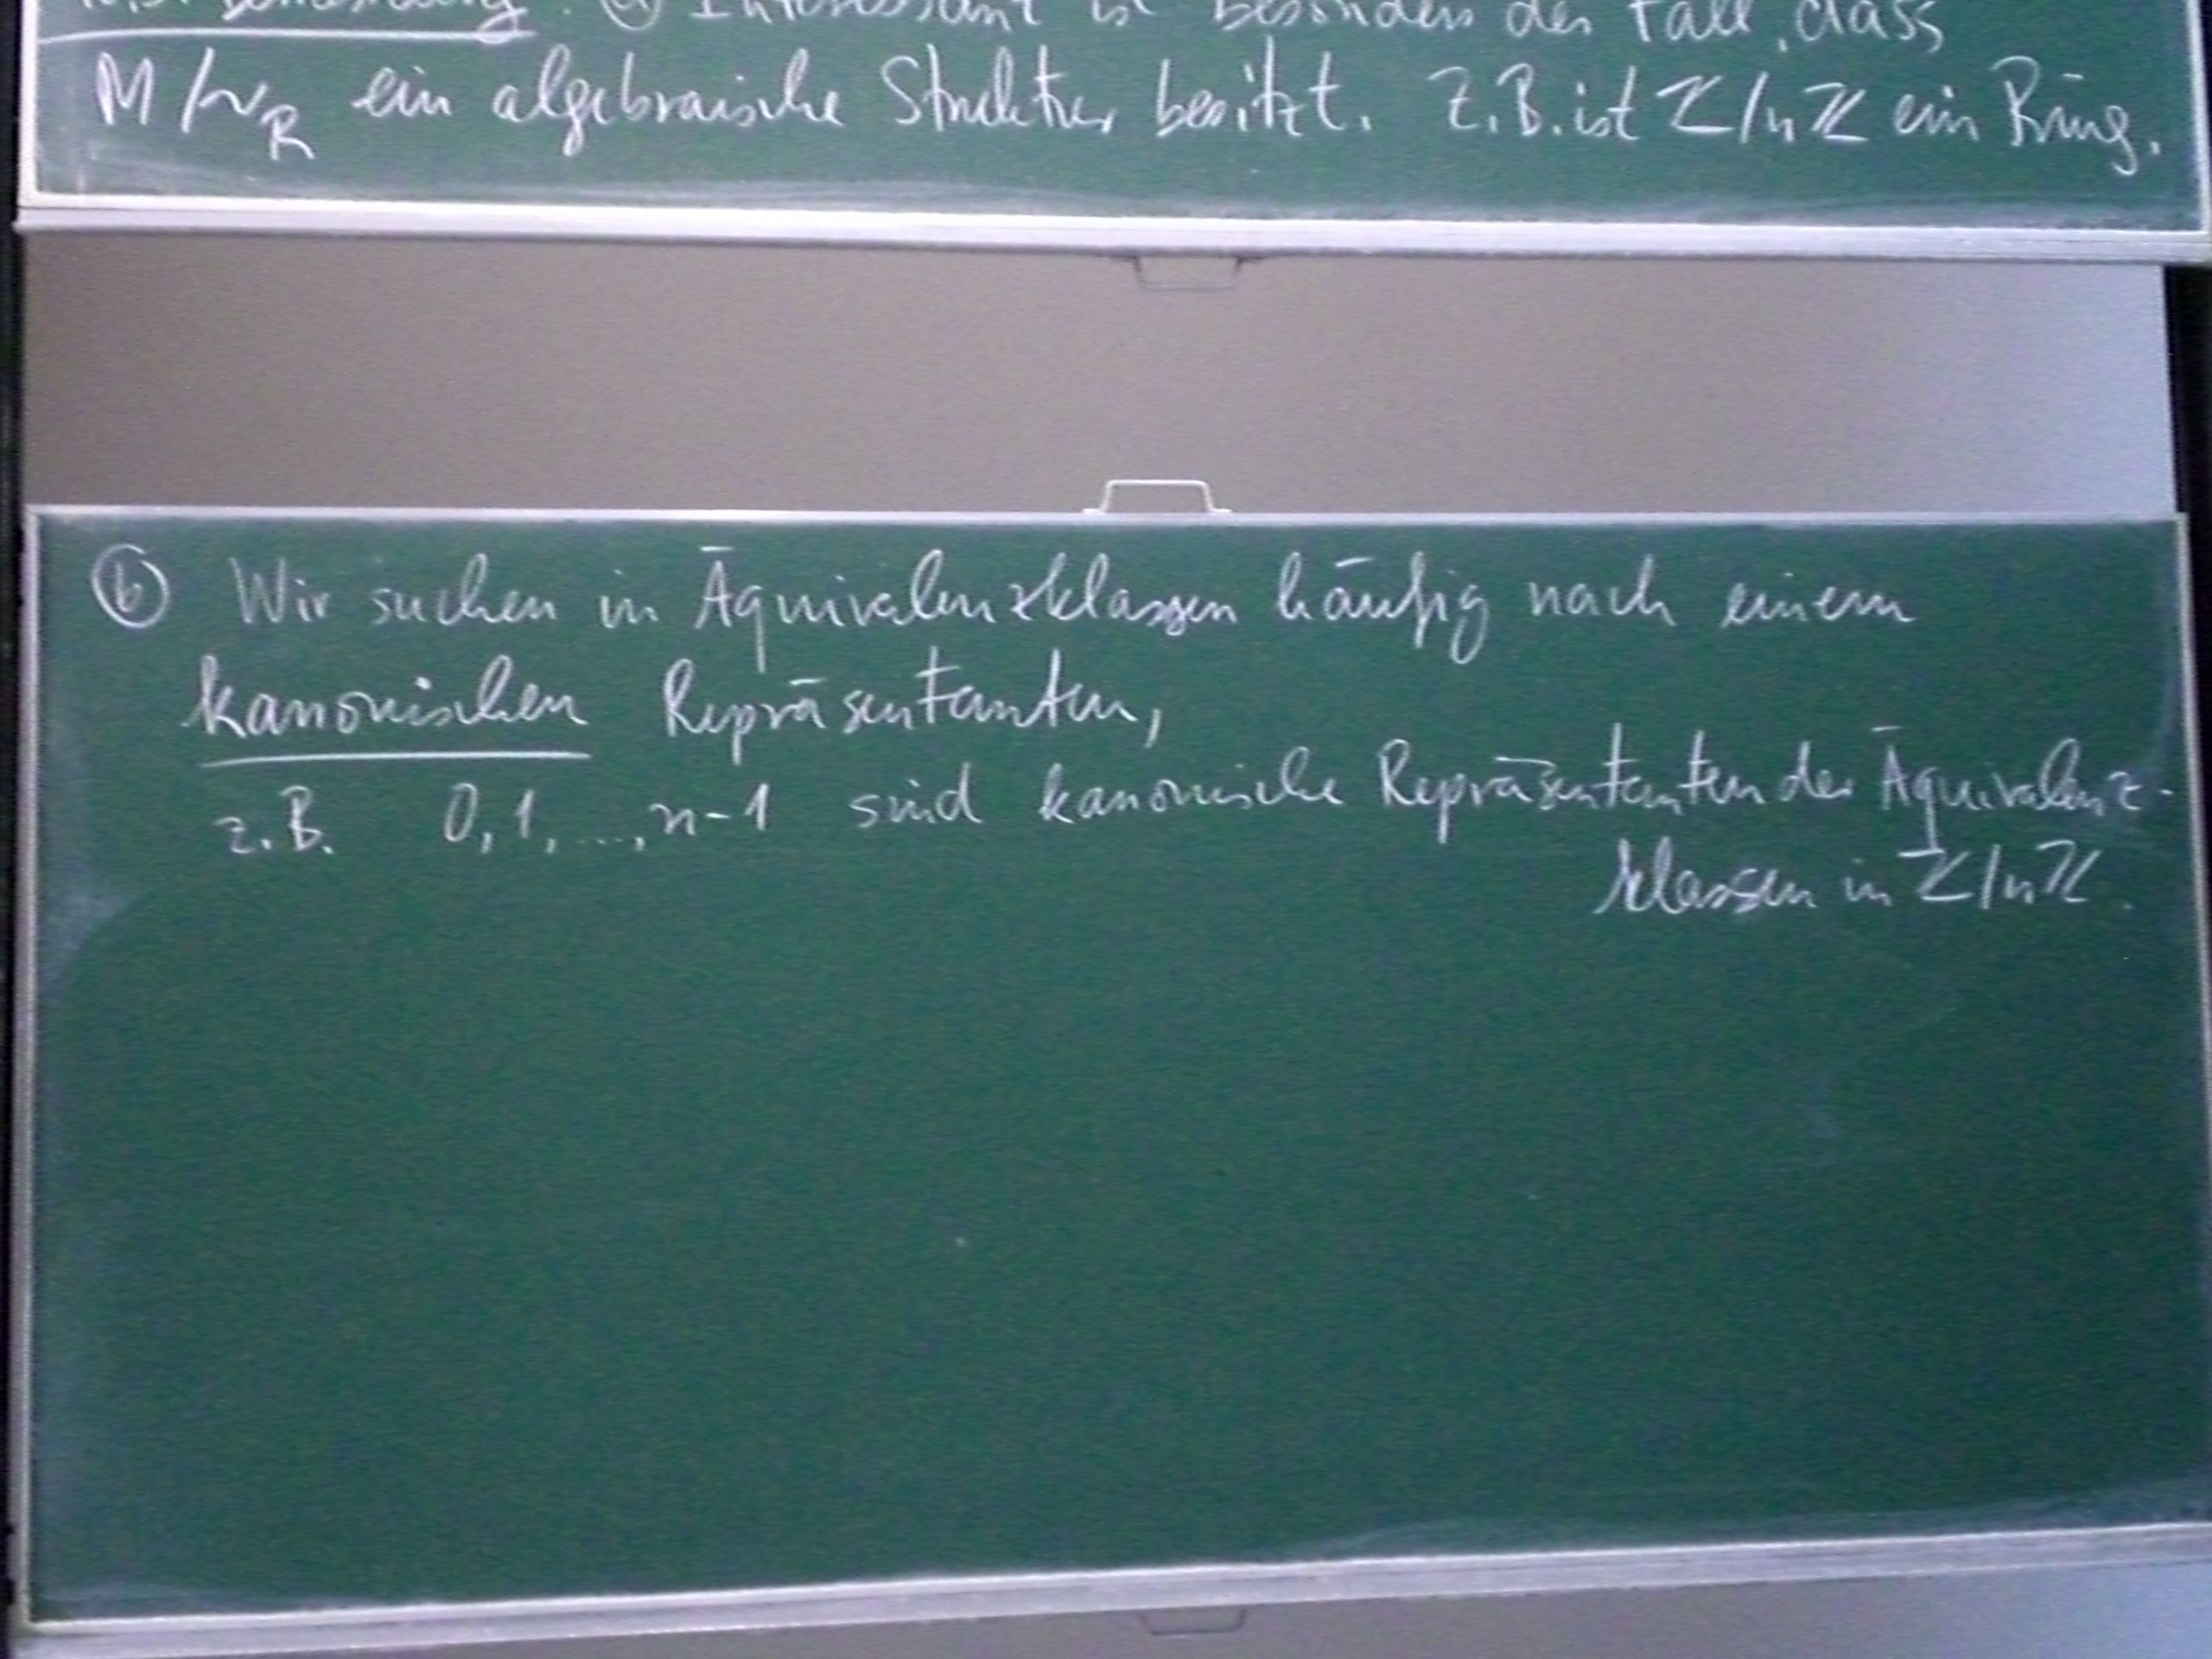 Bemerkung: (a) Interessant ist besonders der Fall, dass
M/~R ein algebraische Struktur besitzt. Z.B. ist ℤ/nℤ ein Ring.
(b) Wir suchen in Äquivalenzklassen häufig nach einem
kanonischen Repräsentanten,
z.B. 0, 1, ..., n-1 sind kanonische Repräsentanten der Äquivalenz-
klassen in ℤ/nℤ.